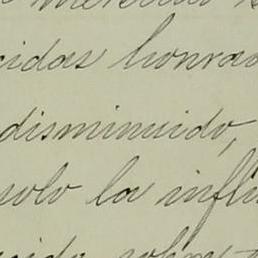 cidas honrad
disminuido,
solo la influ
sobre